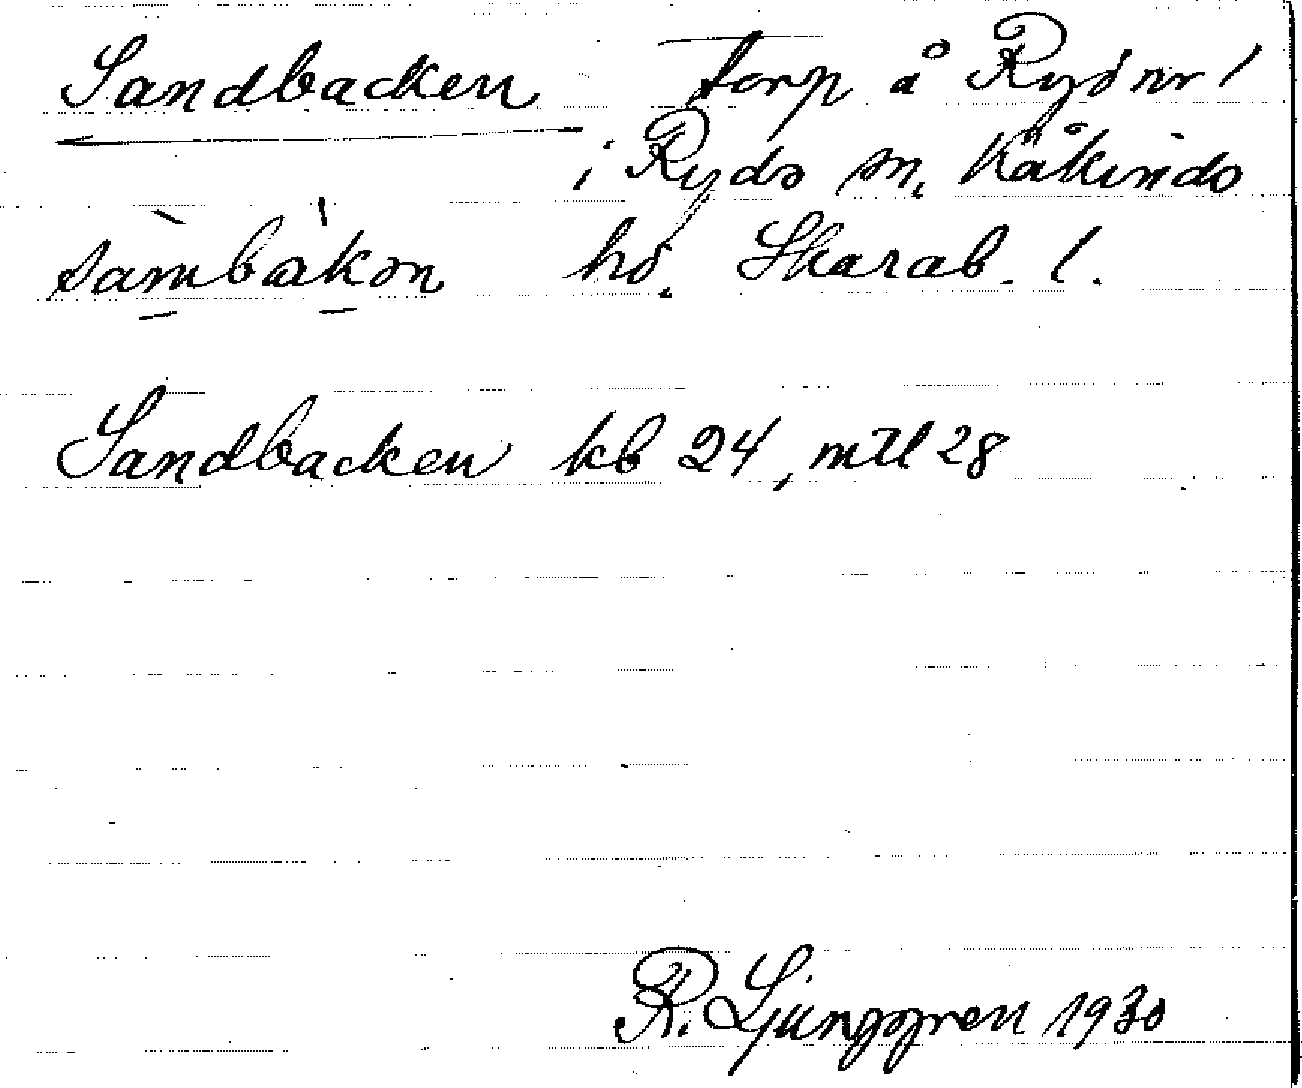 Sandbacken torp å Ryd nr 1
i Ryds sn, Kåkinds
sàmbákən hd. Skarab. l.
Sandbacken kb 24, mtl 28
R. Ljunggren 1930